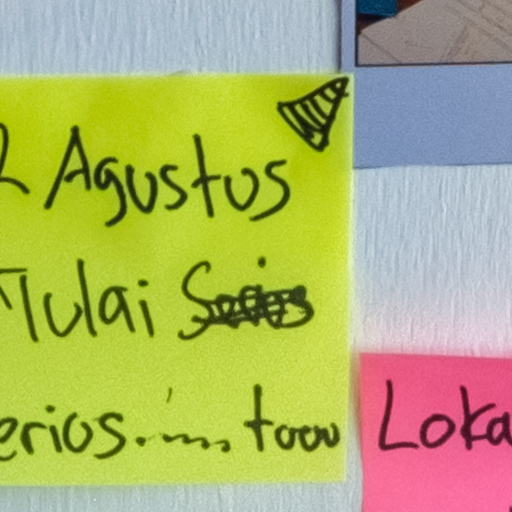 2 Agustus
Mulai
erios.
Loka